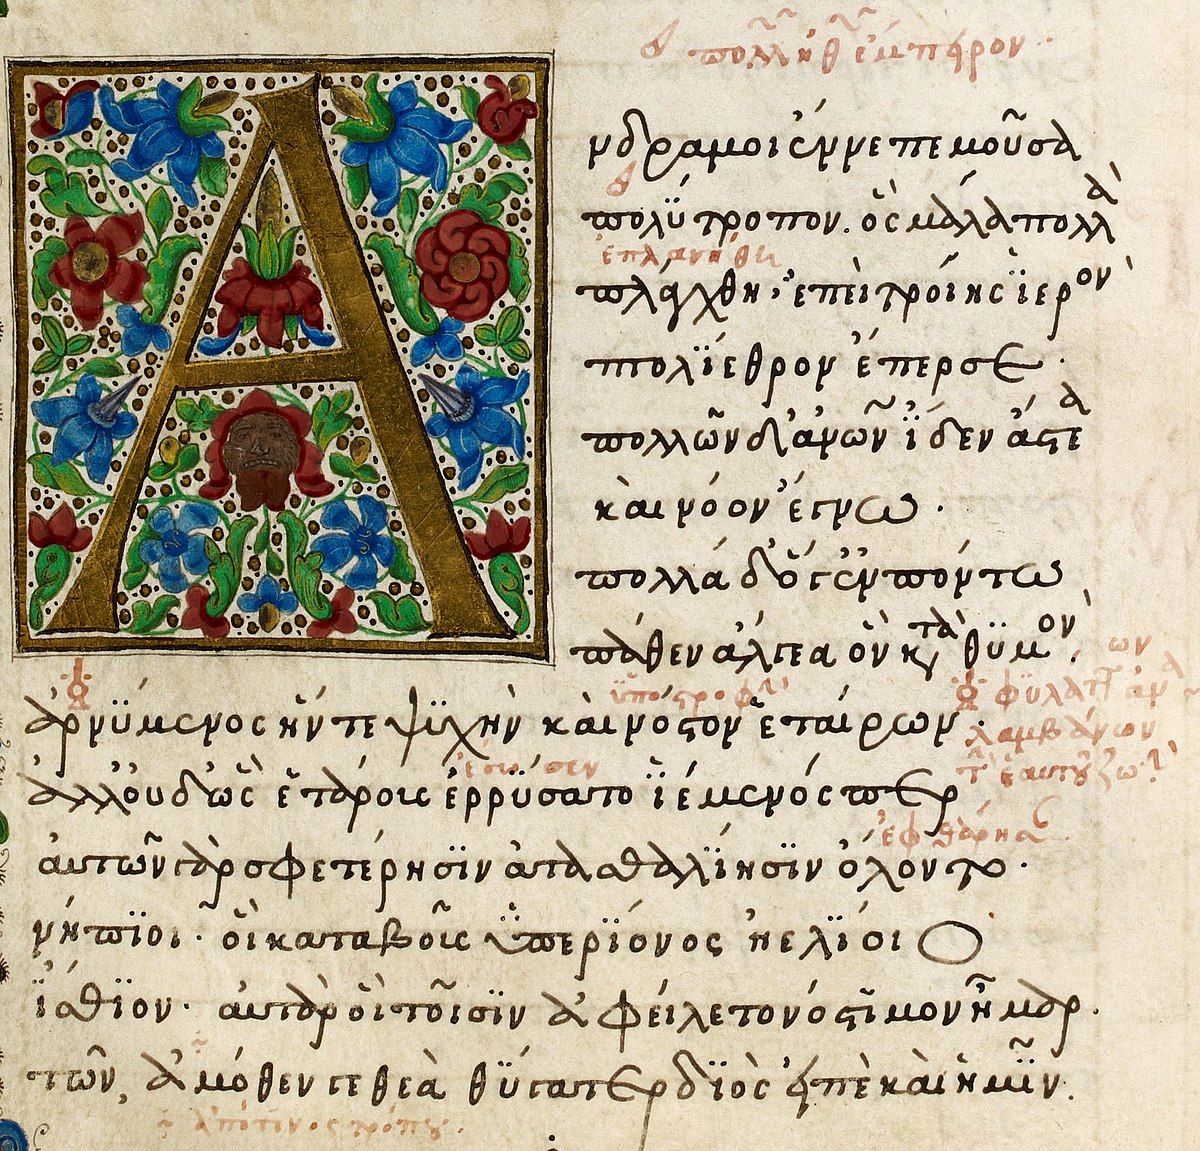 ἔμπειρον
Α
νδρα μοι ἔννεπε μοῦσα
πολύτροπον. ὃς μάλα πολλὰ
ἐπλανήθη
πλάγχθη, ἐπεὶ τροίης ϊερὸν
πτολϊεθρον ἔπερσε·
πολλῶν δ' ἀνῶν ἴδεν ἄστεα
καὶ νόον ἔγνω.
πολλὰ δ' ὅγ' ἐν πόντω
πάθεν ἄλγεα ὃν κατὰ θϋμόν.
ὑποστροφὴν
ἀρνϋμενος ἥν τε ψϋχὴν καὶ νόστον ἑταίρων.
φϋλάττων
λαμβάνων
ἔσωσεν
ἀλλ' οὐδ' ὣς ἑτάροις ἐρρϋσατο ἱέμενός περ
ἐφθάρησαν
αὐτῶν γὰρ σφετέρησϊν ἀτασθαλίησϊν ὄλοντο·
νήπϊοι· οἳ κατὰ βοῦς ὑπερϊόνος ἠελϊοιο
ἴσθϊον· αὐτὰρ ὁ τοῖσϊν ἀφείλετο νόστιμον ἦμαρ.
τῶν, ἁμόθεν γε θεὰ θϋγατερ διὸς εἰπὲ καὶ ἡμῖν.
ἀπό τινος τρόπου.